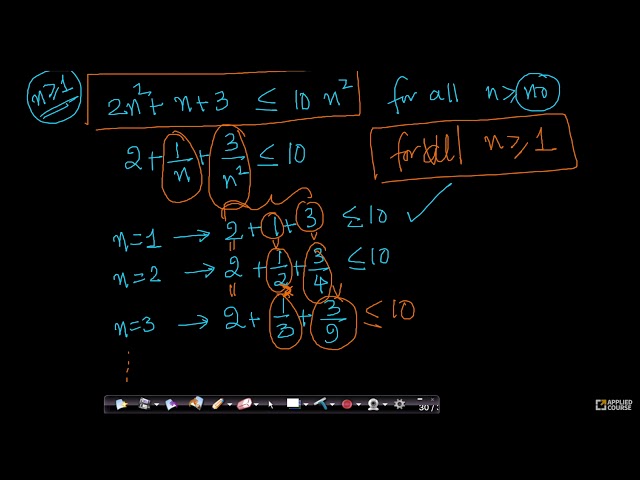 n≥1
2n² + n + 3 ≤ 10 n² for all n≥n0
2 + 1/n + 3/n² ≤ 10
for all n≥1
n=1 → 2 + 1 + 3 ≤ 10 ✓
n=2 → 2 + 1/2 + 3/4 ≤ 10
n=3 → 2 + 1/3 + 3/9 ≤ 10
30 /
APPLIED
COURSE